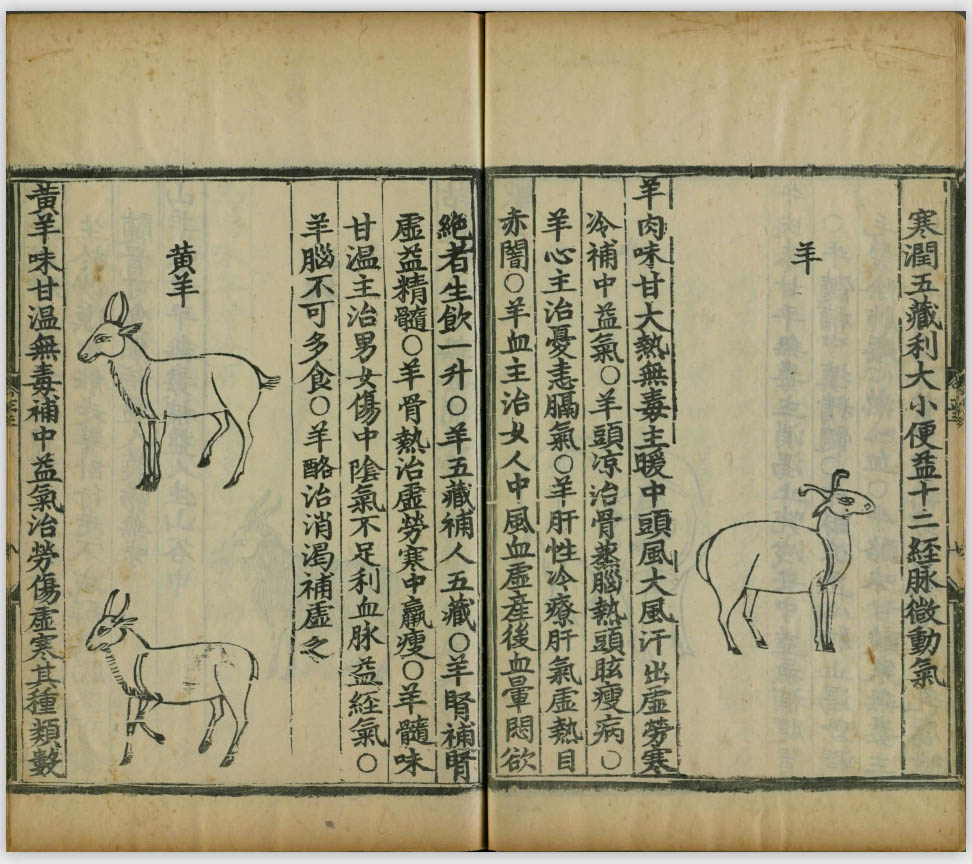 寒潤五藏利大小便益十二經脉微動氣
羊
羊肉味甘大熱無毒主暖中頭風大風汗出虛勞寒
冷補中益氣○羊頭凉治骨蒸腦熱頭眩瘦病○
羊心主治憂恚膈氣○羊肝性冷療肝氣虛熱目
赤闇○羊血主治女人中風血虛產後血暈悶欲
絶者生飲一升○羊五藏補人五藏○羊腎補腎
虛益精髓○羊骨熱治虛勞寒中羸瘦○羊髓味
甘温主治男女傷中隂氣不足利血脉益經氣○
羊腦不可多食○羊酪治消渴補虛乏
黄羊
黄羊味甘温無毒補中益氣治勞傷虛寒其種類數